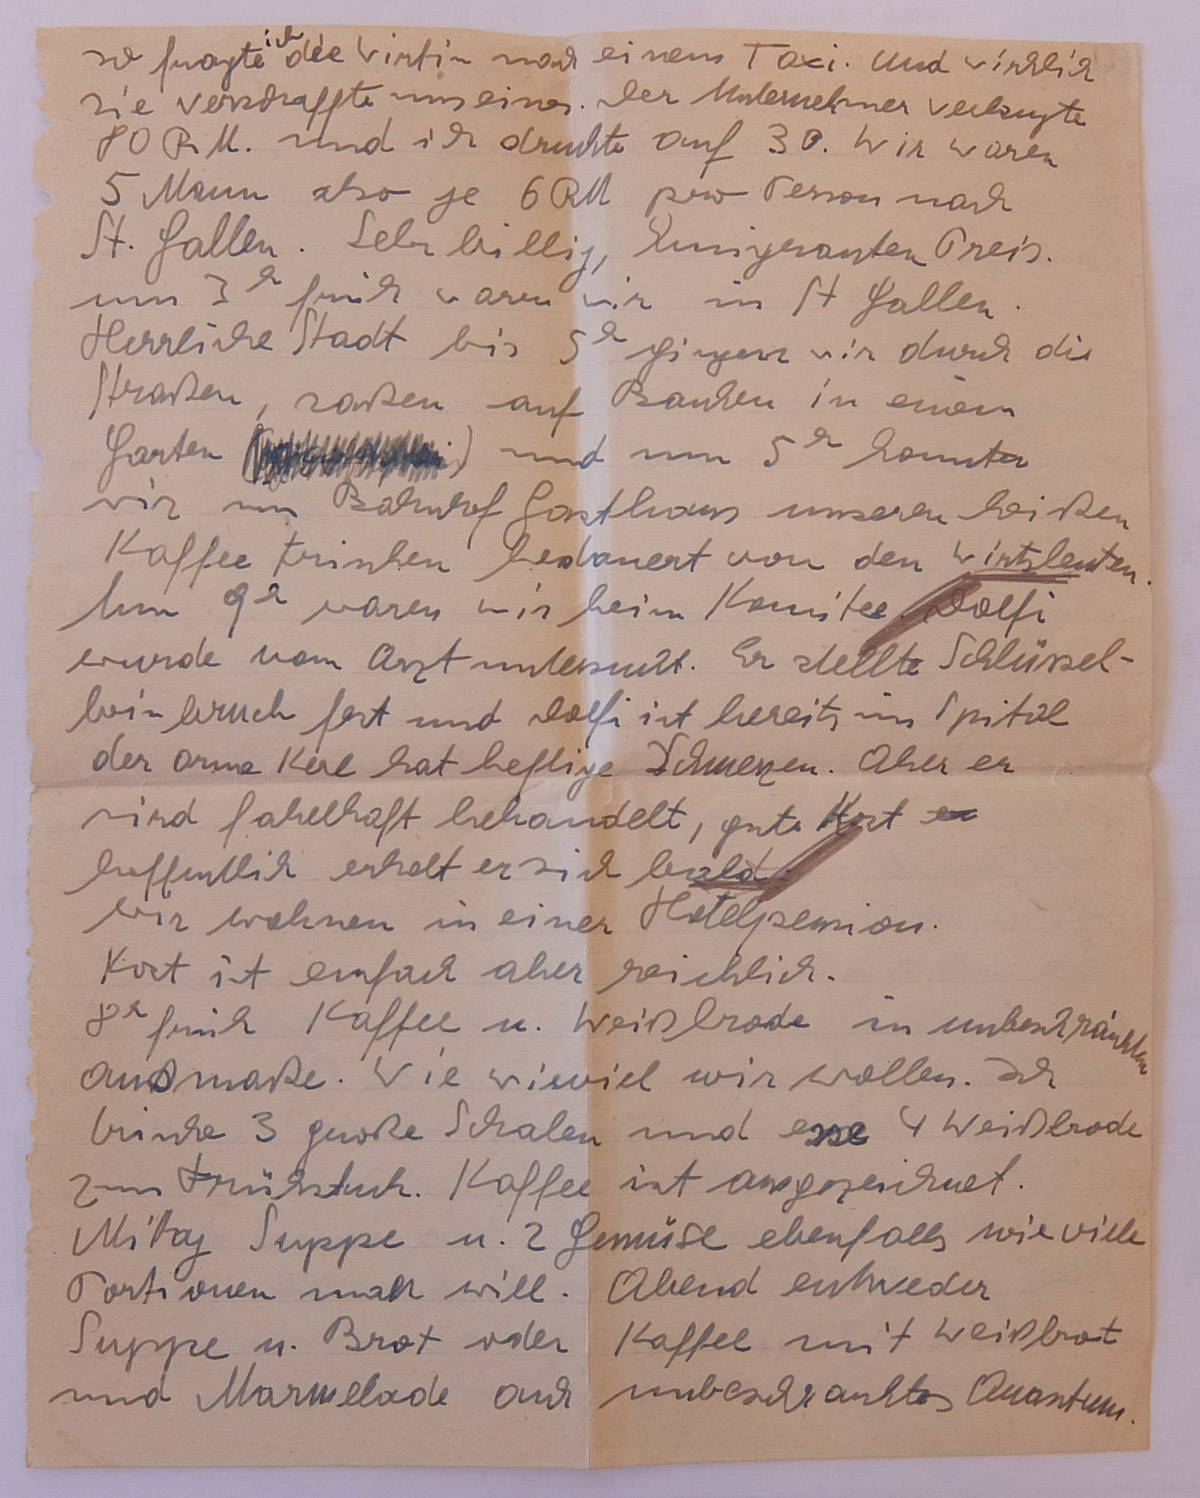 so fragte ich die Wirtin nach einem Taxi. Und wirklich
sie verschaffte uns eines. Der Unternehmer verlangte
80 RM. und ich druckte auf 30. Wir waren
5 Mann also je 6 RM pro Person nach
St. Gallen. Sehr billig, Emigranten Preis.
um 3h früh waren wir in St Gallen.
Herrliche Stadt bis 5h gingen wir durch die
Straßen, saßen auf Banken in einem
Garten und um 5h konnten
wir im Bahnhof Gasthaus unseren heißen
Kaffee trinken bedauert von den Wirtsleuten.
Um 9h waren wir beim Komitee. Dolfi
wurde vom Arzt untersucht. Er stellte Schlüssel-
beinbruch fest und Dolfi ist bereits im Spital
der arme Kerl hat heftige Schmerzen. Aber er
wird fabelhaft behandelt, gute Kost
hoffentlich erholt er sich bald.
Wir wohnen in einer Hotelpension.
Kost ist einfach aber reichlich.
8h früh Kaffee u. Weißbrode in unbeschränkten
Ausmaße. Wie wieviel wir wollen. Ich
trinke 3 große Schalen und esse 4 Weißbrode
zum Frühstuck. Kaffee ist ausgezeichnet.
Mittag Suppe u. 2 Gemüse ebenfalls wie viele
Portionen man will. Abend entweder
Suppe u. Brot oder Kaffee mit Weißbrot
und Marmelade auch unbeschranktes Quantum.